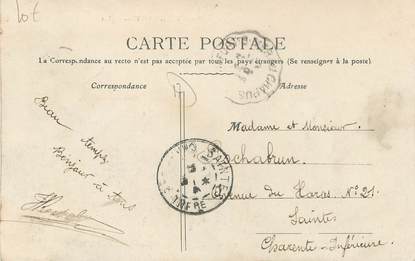 Lot
CARTE POSTALE
La Correspondance au recto n'est pas acceptée par tous les pays étrangers (Se renseigner à la poste)
Correspondance
Adresse
17
Beau
temps
Bonjour à tous
Madame et Monsieur
Cochabrun
Avenue du Haras N° 21
Saintes
Charente-Inférieure
SAINTES
INFRE